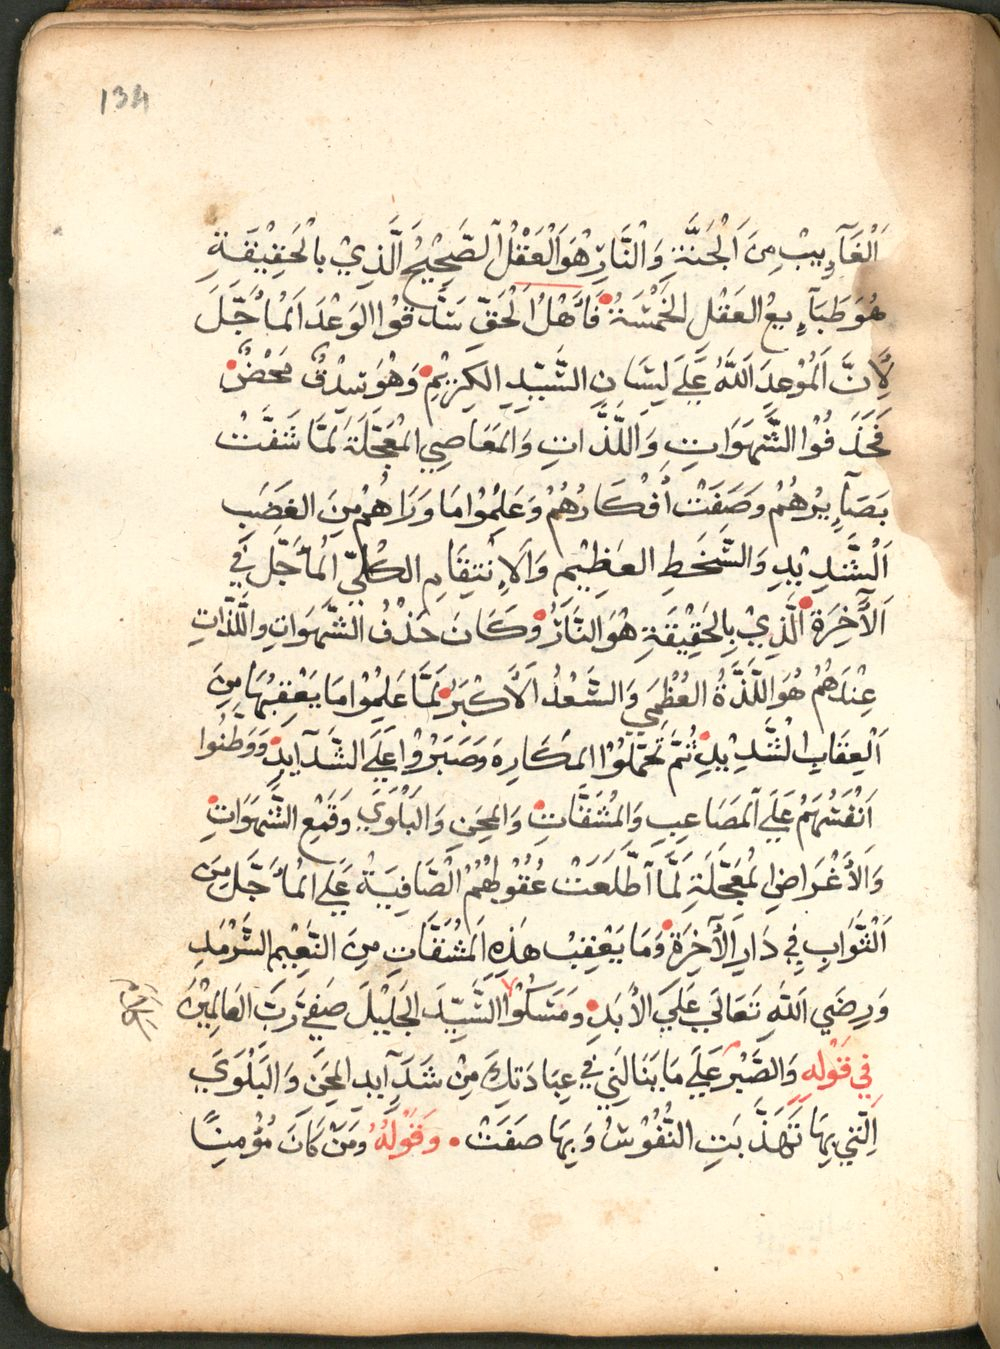 134
اَلْغَآيِبْ مِنَ اَلْجَنَّةِ وَالْنَّارِ هْوَ اَلْعَقْلْ اَلصَّحِيْحْ اَلَّذِيْ بِالْحَقِيْقَةِ
هُوَ طَبَآيِعُ العَقْلِ الخَمْسَةْ فَأَهْلُ اْلحَقّ سَدَّقُوْا الوَعْدَ اَلمُأَجَّلَ
لِأَنَّ اَلْمُوْعِدَ اَللَّهُ عَلَى لِسَانِ السَّيِّدِ الكَرِيْمِ وَهْوَ سِدْقٌ مَحْضٌ
فَحَذَفُوْا الشَّهَوَاتِ وَاللَّذَّاتِ وَالمَعَاصِي المْعَجَّلَةَ لَمَّا شَفَّتْ
بَصَآيِرْهُمْ وَصَفَتْ أَفْكَارْهُمْ وَعَلِمُوْا مَا وَرَاهُمْ مِنَ الغَضَبِ
اَلْشَّدِيْدِ وَالسَّخَطِ العَظِيْمِ وَاَلاِنْتِقَامِ الكُلِّيّ اَلمُأَجَّلْ فِي
اَلآَخِرَةْ اَلَّذِيْ بِالحَقِيْقَةِ هْوَ النَّارُ وَكَانَ حَذْفُ الشَّهَوَاتِ وَاللَّذَّاتِ
عِنْدَهُمْ هُوَ اللَّذَّةُ العُظْمَي وَالسَّعْدُ الأَكْبَرْ لَمَّا عَلِمُوْا مَا يَعْقِبْهَا مِنَ
اَلْعِقَابِ الْشَّدِيْدِ ثُمَّ تَحَمَّلُوْا المَكَارِهَ وَصَبَرُوْا عَلَى الشَّدَآيِدِ وَوَطَّنُوا
اَنْفُسَهُمْ عَلَي اَلمَصَاعِبِ وَالمْشَقَّاتِ وَالمِحَنِ وَالبَلْوَي وَقَمْعِ الشَّهَوَاتِ
وَالأَغْرَاضِ المْعَجَّلَةِ لَمَّا اَطَّلَعَتْ عُقُوْلهُمْ الْصَّافِيَةْ عَلَي المُأَجَّلِ مِنَ
اَلْثَّوَابِ فِي دَارِ الأَخِرَةْ وَمَا يَعْقِبْ هَذِهِ اَلمْشَقَّاتِ مِنَ النَّعِيْمِ السَّرْمَدِ
وَرِضَي اَللَّهِ تَعَالَي عَلَيَ الأَبَدِ وَمَسَّكُوْا السَّيِّدَ الجَلِيْلَ صَفِيَّ رَبَّ العَالَمِيْنَ
فِي قَوْلِهِ وَالصَّبْرَ عَلَي مَا يَنَالُنِي فِي عِبَادَتِكَ مِنْ شَدَآيِدِ المِحَنَ وَالبَلْوَي
اِلَّتي بِهَا تَهَذَّبَتِ النُّفُوْسْ وَبِهَا صَفَتْ • وَقَوْلُهُ وَمَنْ كَانَ مُؤْمِنًا